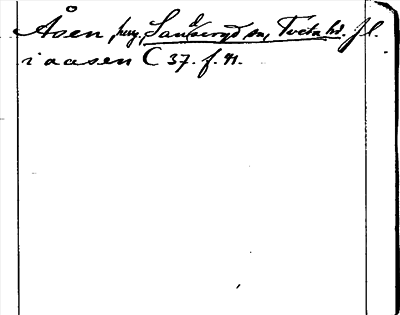 Åsen, hug, Sandseryd sn, Tveta hd. Jl.
i aasen C 37. f. 41.